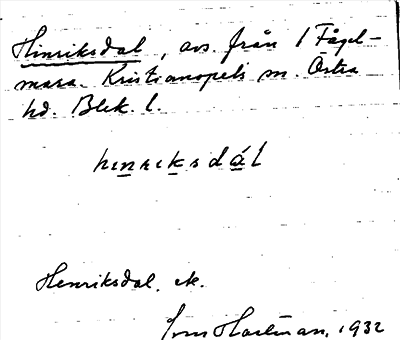 Hinriksdal, avs. från 1 Fågel-
mara. Kristianopels sn. Östra
hd. Blek. l.
hinriksdál
Henriksdal, ek.
Hartman, 1932